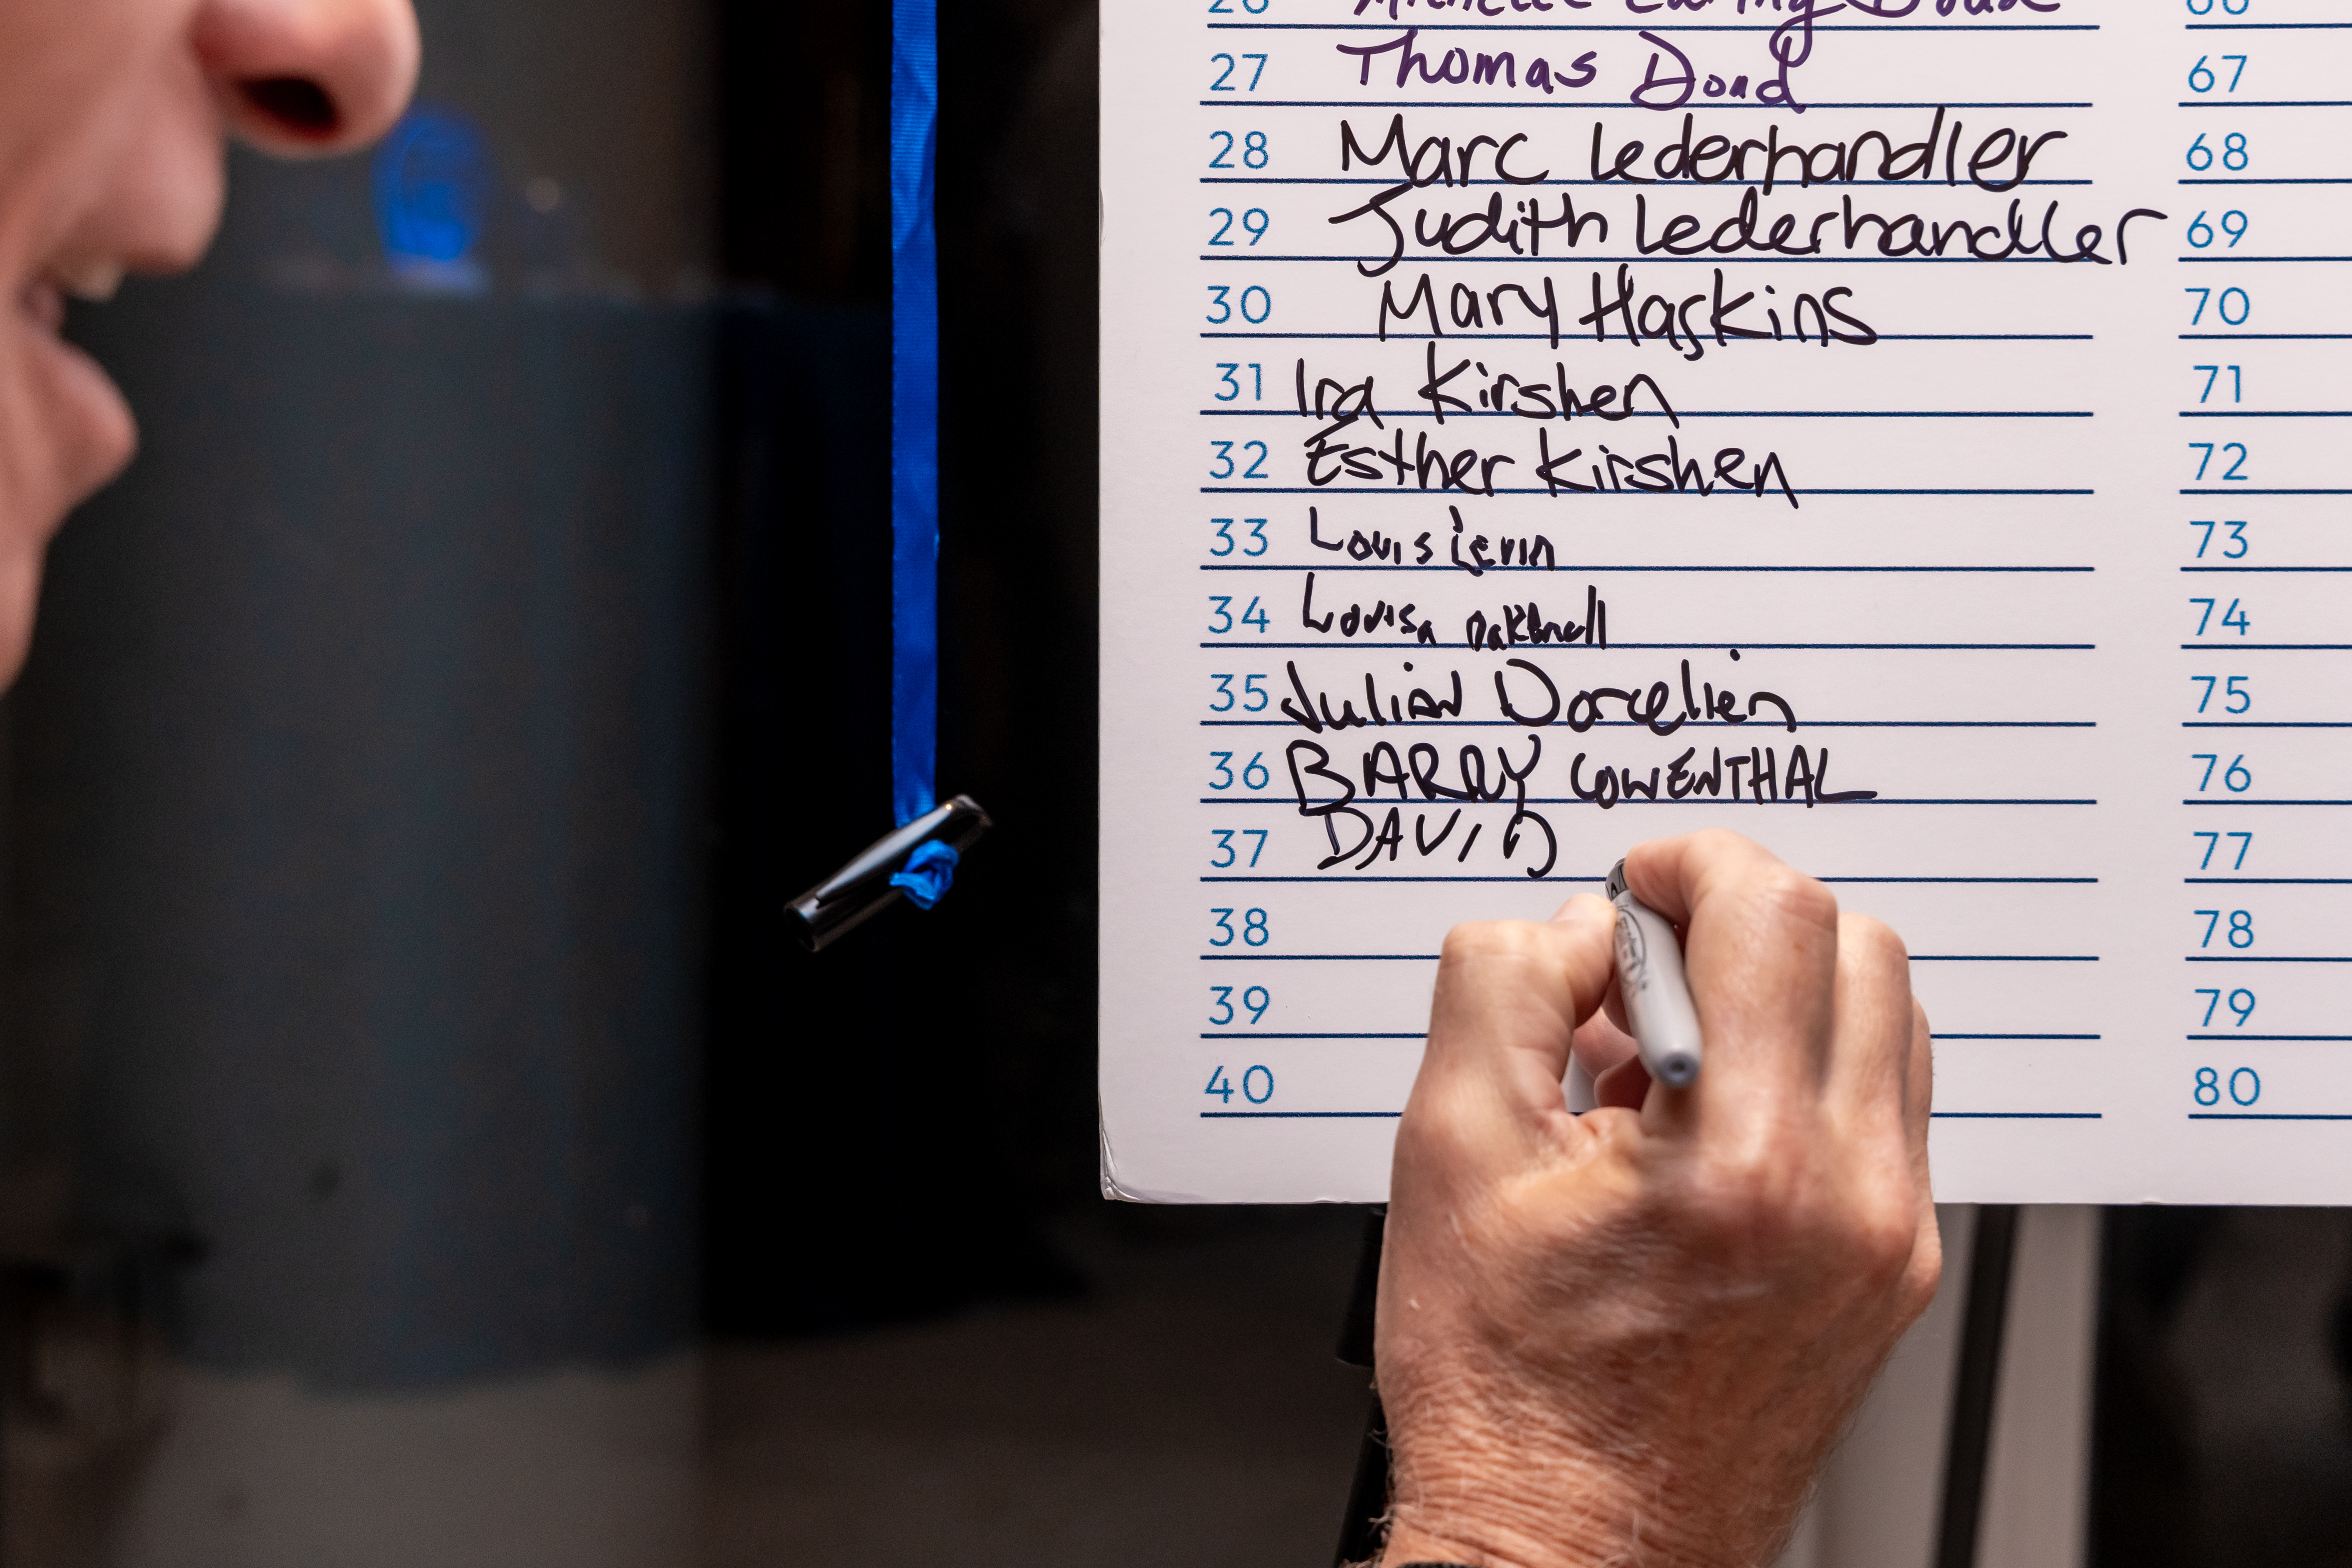 26 Michelle
27 Thomas Doud 67
28 Marc Lederhandler 68
29 Judith Lederhandler 69
30 Mary Haskins 70
31 Ira Kirshen 71
32 Esther Kirshen 72
33 Louis Levin 73
34 Louisa 74
35 Julian Dorcelien 75
36 BARRY LOWENTHAL 76
37 DAVID 77
38 78
39 79
40 80